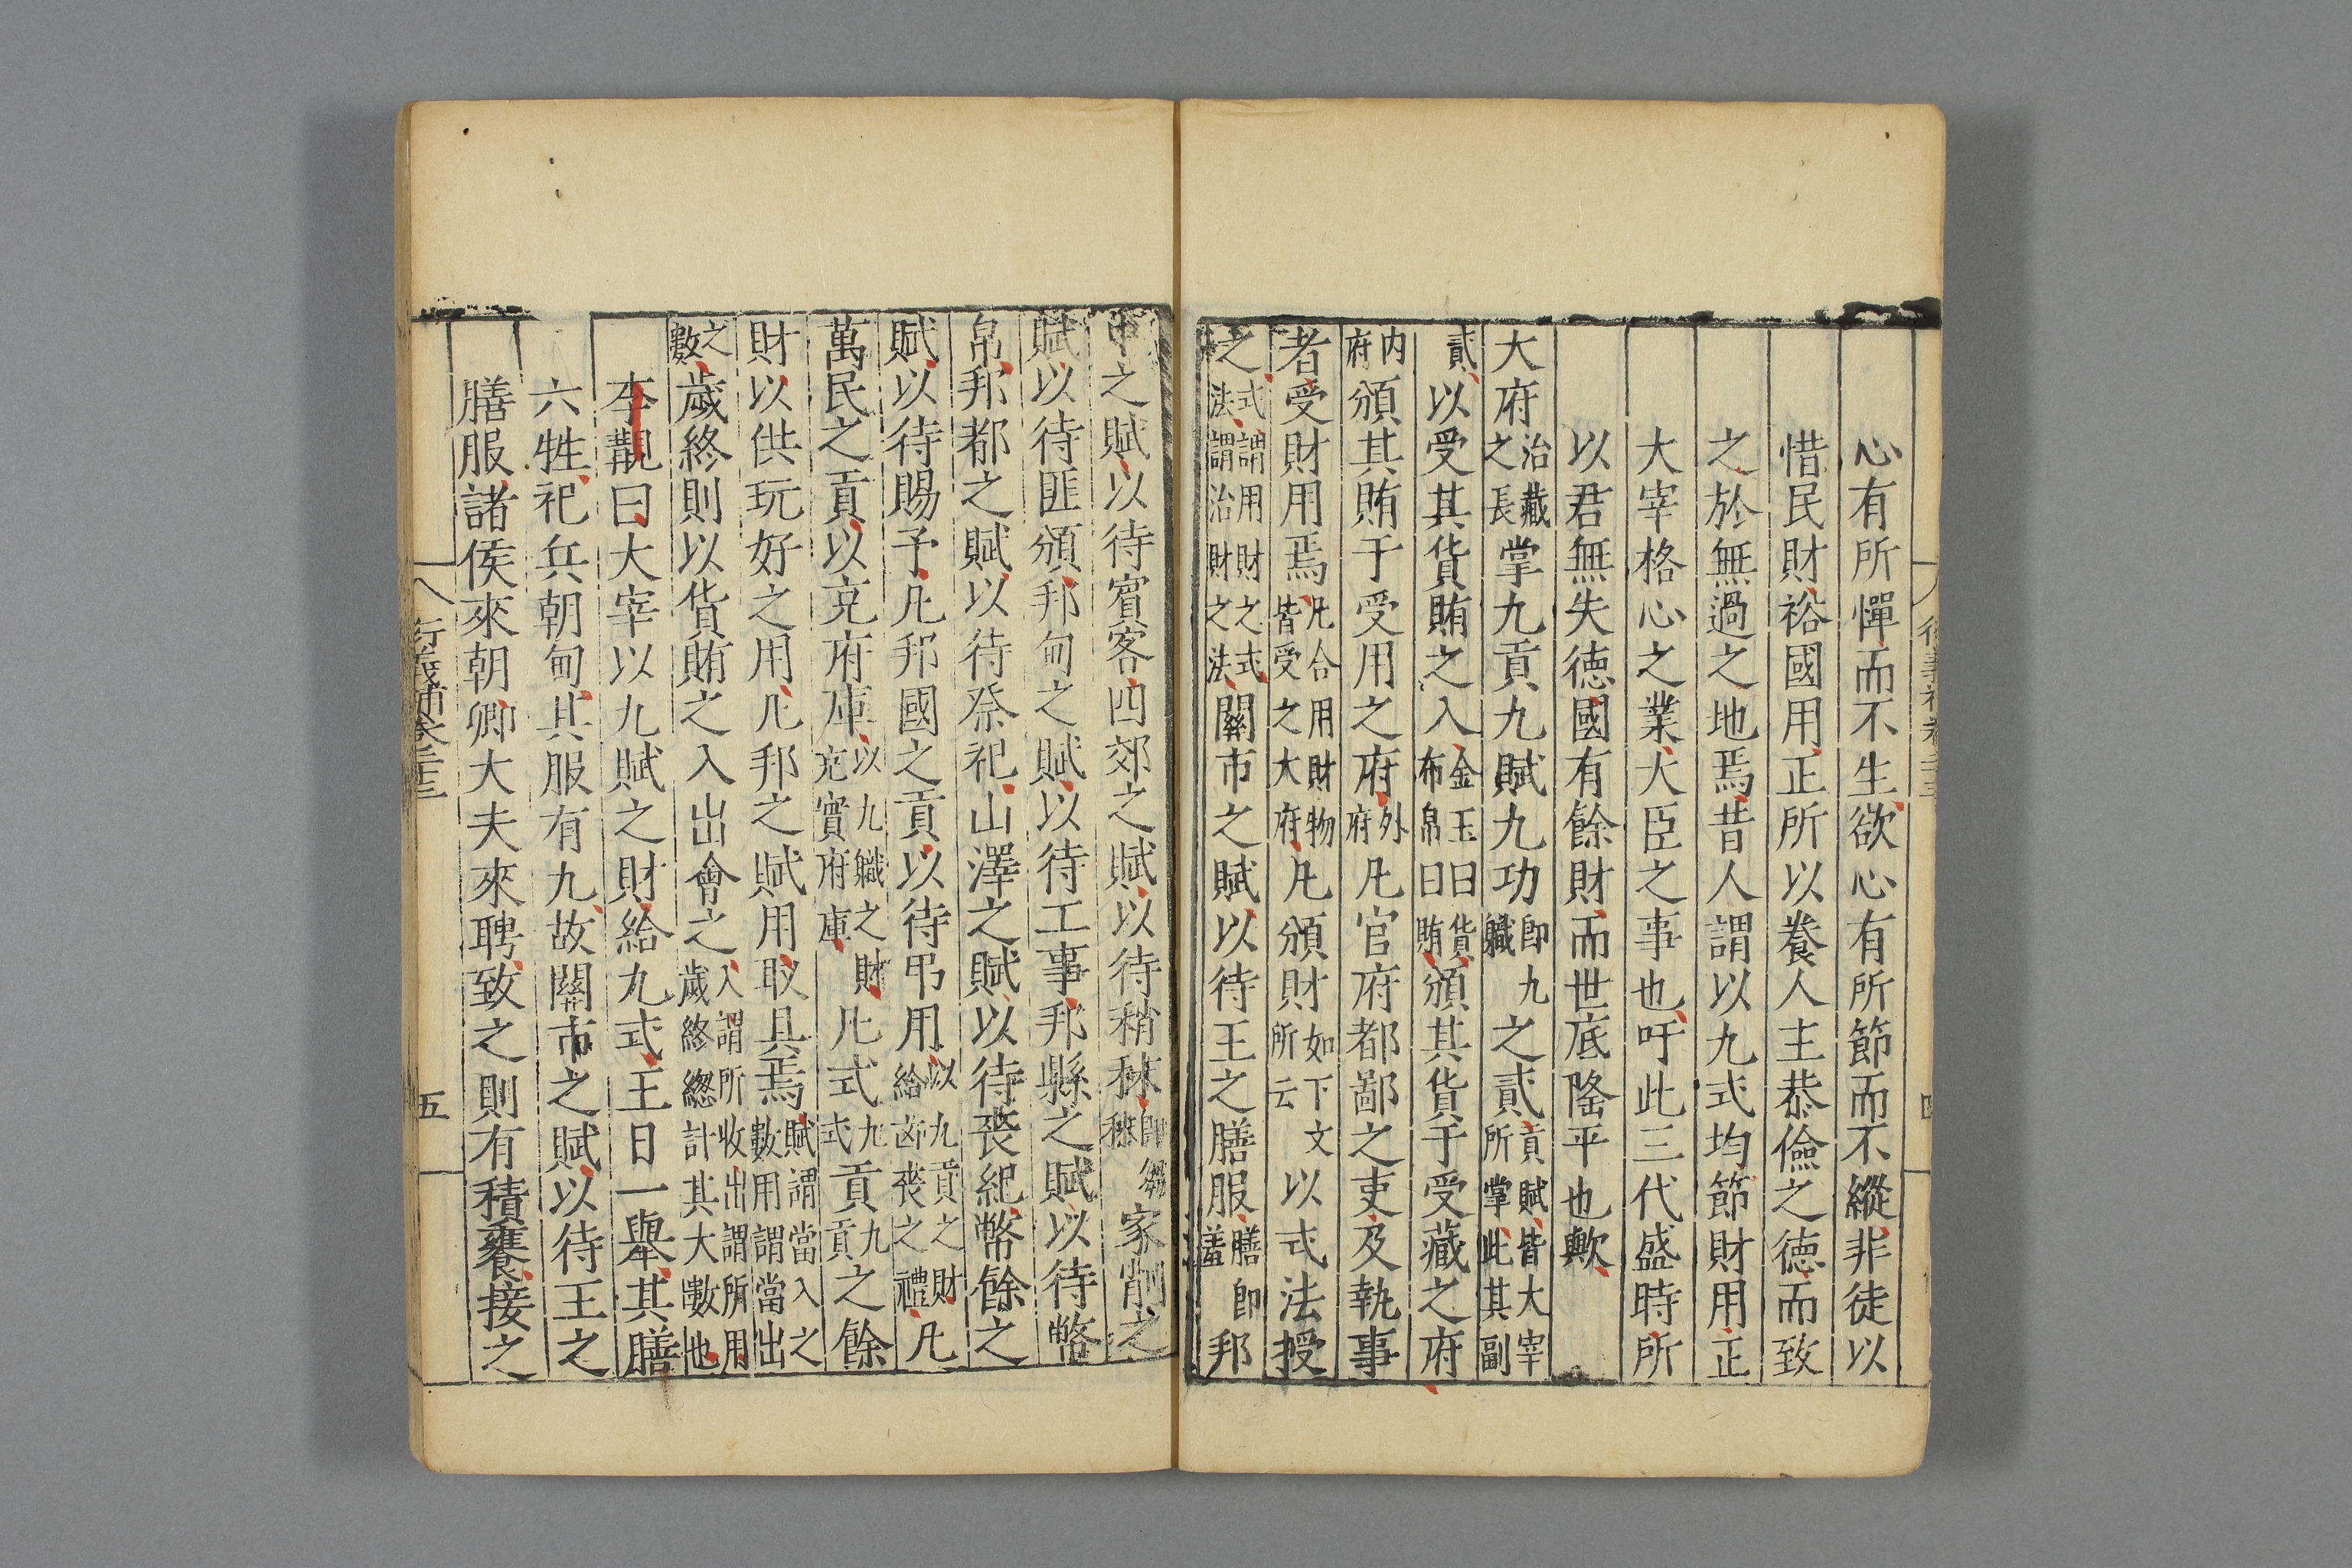 心有所憚而不生欲心有所節而不縱非徒以
惜民財裕國用正所以養人主恭儉之德而致
之於無過之地焉昔人謂以九式均節財用正
大宰格心之業大臣之事也吁此三代盛時所
以君無失德國有餘財而世底隆平也歟
大府治藏之長掌九貢九賦九功即九職之貳貢賦皆大宰所掌此其副
貳以受其貨賄之入金玉曰貨布帛曰賄頒其貨于受藏之府
内府頒其賄于受用之府外府凡官府都鄙之吏及執事
者受財用焉凡合用財物皆受之大府凡頒財如下文所云以式法授
之式謂用財之式法謂治財之法關市之賦以待王之膳服膳即羞邦
中之賦以待賓客四郊之賦以待稍秣即芻秣家削之
賦以待匪頒邦甸之賦以待工事邦縣之賦以待幣
帛邦都之賦以待祭祀山澤之賦以待喪紀幣餘之
賦以待賜予凡邦國之貢以待弔用以九貢之財給凶喪之禮凡
萬民之貢以充府庫以九職之財充實府庫凡式九式貢九貢之餘
財以供玩好之用凡邦之賦用取具焉賦謂當入之數用謂當出
之數歲終則以貨賄之入出會之入謂所收出謂所用歲終總計其大數也
李覯曰大宰以九賦之財給九式王日一舉其膳
六牲祀兵朝甸其服有九故關市之賦以待王之
膳服諸侯來朝卿大夫來聘致之則有積饔餼接之
衍義補卷二十三
五